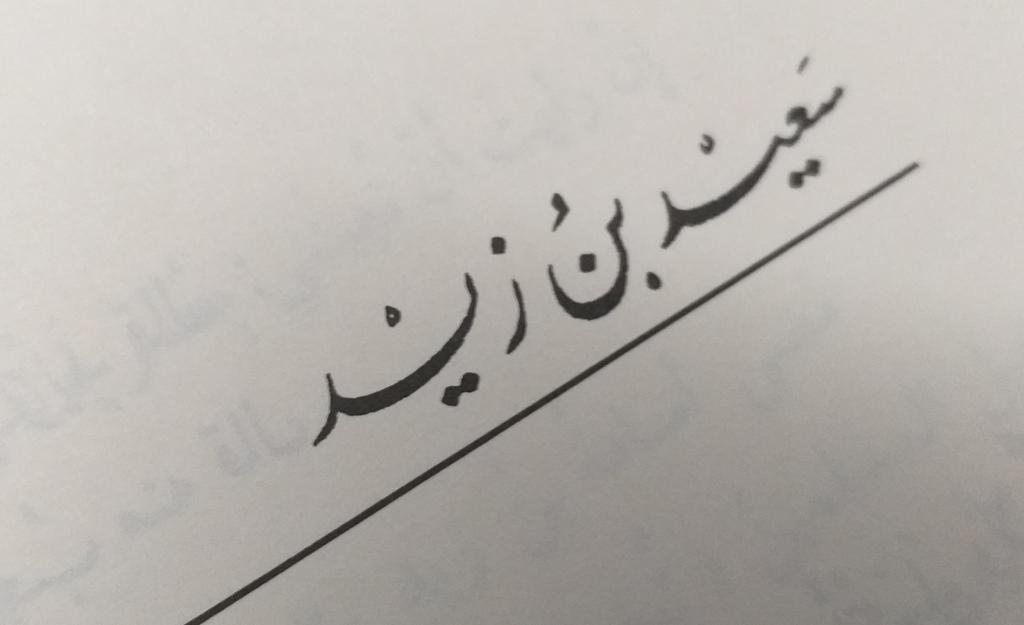 سَعيْد بنُ زيْد